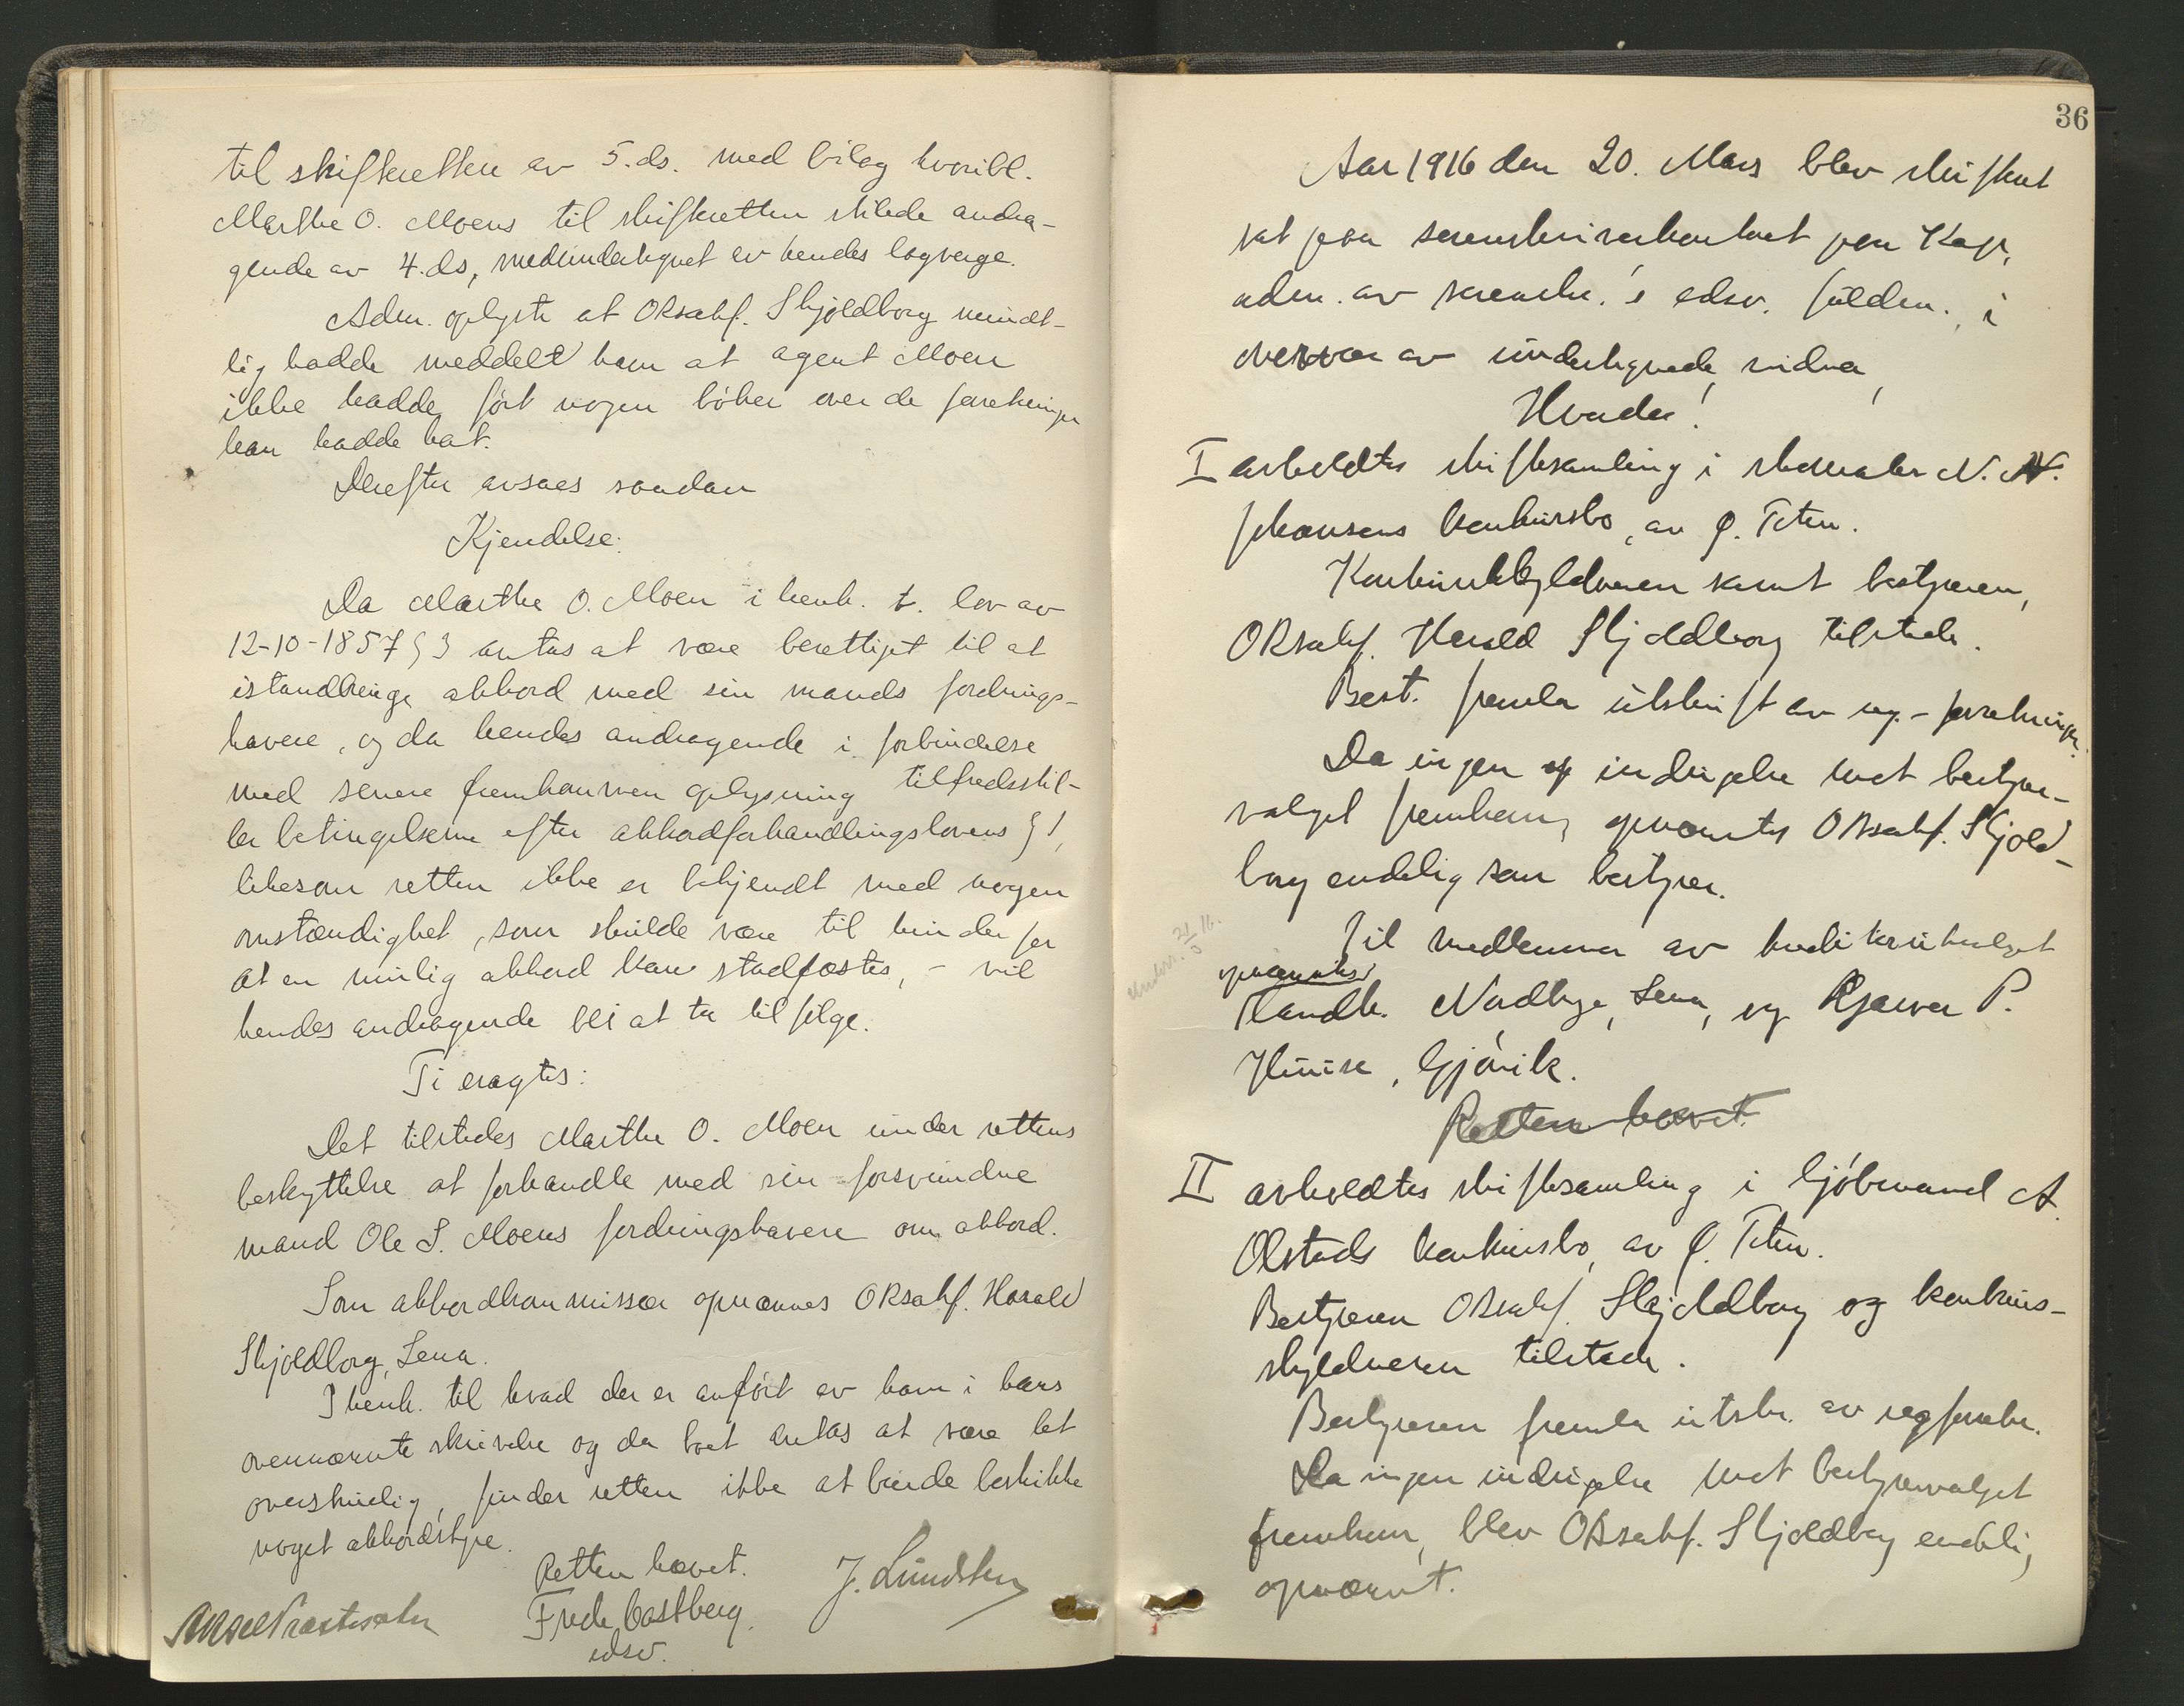 til skifteretten av 5. ds. med bilag hvoribl.
Marthe O. Moens til skifteretten stilede andra-
gende av 4. ds, medundertegnet av hendes lagverge.
Adm. oplyste at ORsakf. Skjoldborg mundt-
lig hadde meddelt ham at agent Moen
ikke hadde ført nogen bøker over de forretninger
han hadde hat.
Derefter avsaes saadan
Kjendelse:
Da Marthe O. Moen i henh. t. lov av
12-10-1857 § 3 antas at være berettiget til at
istandbringe akkord med sin mands fordrings-
havere, og da hendes andragende i forbindelse
med senere fremkommen oplysning tilfredsstil-
ler betingelserne efter akkordforhandlingslovens § 1,
likesom retten ikke er bekjendt med nogen
omstændighet, som skulde være til hinder for
at en mulig akkord kan stadfæstes, - vil
hendes andragende bli at ta tilfølge.
Ti eragtes:
Det tilstedes Marthe O. Moen under rettens
beskyttelse at forhandle med sin forsvundne
mand Ole S. Moens fordringshavere om akkord.
Som akkordkommissær opnævnes ORsakf. Harald
Skjoldborg, Lena.
I henh. til hvad der er anført av ham i hans
ovennævnte skrivelse og da boet antas at være let
overskuelig, finder retten ikke at burde beskikke
noget akkordstyre.
Retten hævet.
Frede Castberg
edsv.
J. Lundsten
36
Aar 1916 den 20. Mars blev skifteret
sat paa sorenskriverkontoret paa Kap,
adm. av sorenskr.'s edsv. fuldm., i
overvær av undertegnede vidner,
Hvorda!
I avholdtes skiftesamling i skomaker N. N.
Johansens konkursbo, av Ø. Toten.
Konkursskyldneren samt bestyreren,
ORsakf. Harald Skjoldborg tilstede.
Best. fremla utskrift av reg.-forretningen.
Da ingen indsigelse mot bestyrer-
valget fremkom, opnævntes ORsakf. Skjold-
borg endelig som bestyrer.
Til medlemmer av kreditorutvalget
opnævntes
Handlh. Nordlye, Lena, og P.
Huuse, Gjøvik.
Retten hævet.
II avholdtes skiftesamling i kjøbmand A.
Olstads konkursbo, av Ø. Toten.
Bestyreren ORsakf. Skjoldborg og konkurs-
skyldneren tilstede.
Bestyreren fremla utskr. av regforretn.
Da ingen indsigelse mot bestyrervalget
fremkom, blev ORsakf. Skjoldborg endelig
opnævnt.